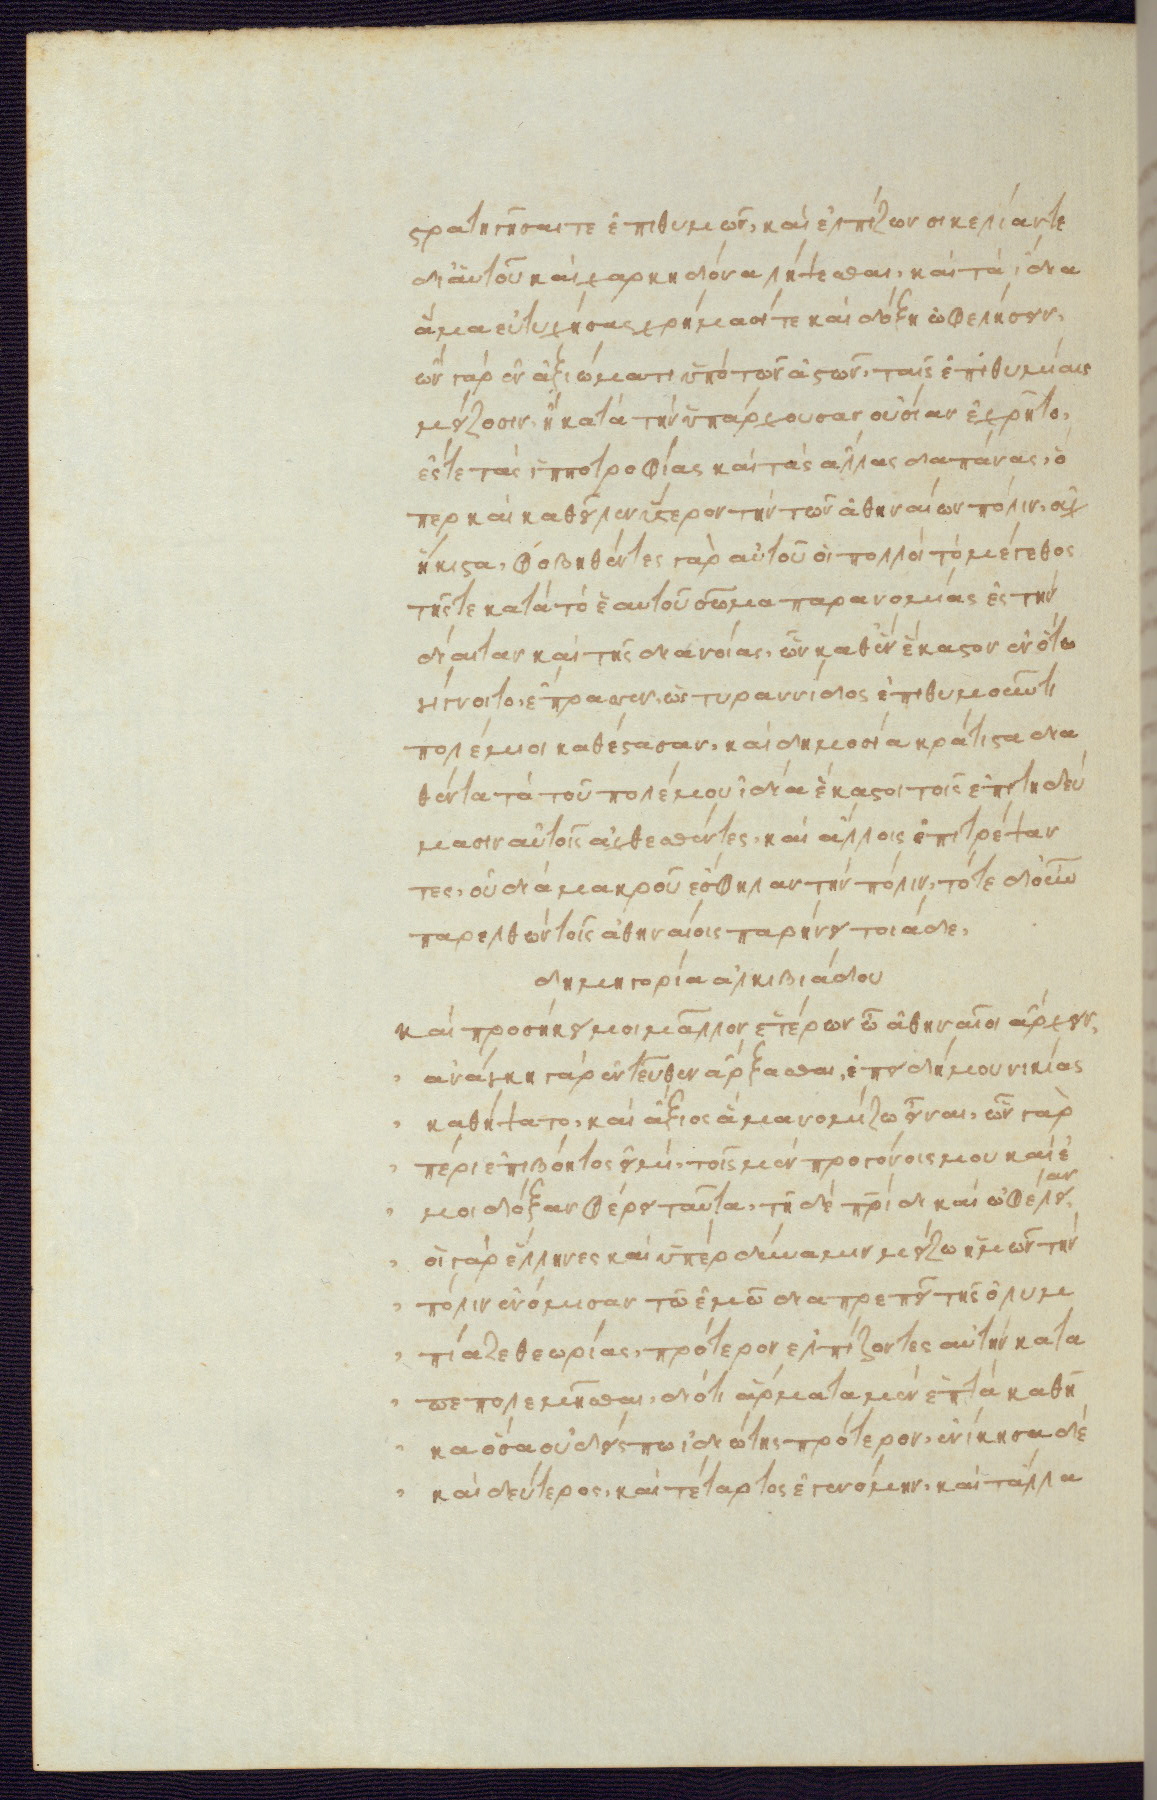 στρατηγῆσαι τε ἐπιθυμῶν, καὶ ἐλπίζων σικελίαν τε
δι' αὑτοῦ καὶ χαρκηδόνα λήψεσθαι, καὶ τὰ ἴδια
ἅμα εὐτυχήσας χρήμασί τε καὶ δόξη ὠφελήσειν.
ὢν γὰρ ἐν ἀξιώματι ὑπὸ τῶν ἀστῶν, ταῖς ἐπιθυμίαις
μείζοσιν, ἢ κατὰ τὴν ὑπάρχουσαν οὐσίαν ἐχρῆτο,
ἔς τε τὰς ἱπποτροφίας καὶ τὰς ἄλλας δαπάνας, ὅ
περ καὶ καθεῖλεν ὕστερον τὴν τῶν ἀθηναίων πόλιν, οὐχ
ἥκιστα, φοβηθέντες γὰρ αὐτοῦ οἱ πολλοὶ τὸ μέγεθος
τῆς τε κατὰ τὸ ἑαυτοῦ σῶμα παρανομίας ἐς τὴν
δίαιταν καὶ τῆς διανοίας, ὧν καθ' ἓν ἕκαστον ἐν ὅτω
γίγνοιτο, ἔπρασσεν, ὡς τυραννίδος ἐπιθυμοῦντι
πολέμιοι καθέστασαν, καὶ δημοσία κράτιστα δια
θέντα τὰ τοῦ πολέμου ἰδία ἕκαστοι τοῖς ἐπιτηδεύ
μασιν αὐτοῦ ἀχθεσθέντες, καὶ ἄλλοις ἐπιτρέψαν
τες, οὐ διὰ μακροῦ ἔσφηλαν τὴν πόλιν, τότε δ' οὖν
παρελθὼν τοῖς ἀθηναίοις παρήνει τοιάδε,
δημηγορία ἀλκιβιάδου
καὶ προσήκει μοι μᾶλλον ἑτέρων ὦ ἀθηναῖοι ἄρχειν,
ἀνάγκη γὰρ ἐντεῦθεν ἄρξασθαι, ἐπειδή μου νικίας
καθήψατο, καὶ ἄξιος ἅμα νομίζω εἶναι, ὧν γὰρ
πέρι ἐπιβόητος εἰμί, τοῖς μὲν προγόνοις μου καὶ ἐ
μοι δόξαν φέρει ταῦτα, τῆ δὲ πρίδι καὶ ὠφελείαν,
οἱ γὰρ ἕλληνες καὶ ὑπὲρ δύναμιν μείζω ἡμῶν τὴν
πόλιν ἐνόμισαν τῶ ἐμῶ διαπρεπεῖ τῆς ὀλυμ
πίαζε θεωρίας, πρότερον ἐλπίζοντες αὐτὴν κατα
πεπολεμῆσθαι, διότι ἅρματα μὲν ἑπτὰ καθῆ
κα ὅσα οὐδείς πω ἰδιώτης πρότερον, ἐνίκησα δέ
καὶ δεύτερος, καὶ τέταρτος ἐγενόμην, καὶ τἄλλα